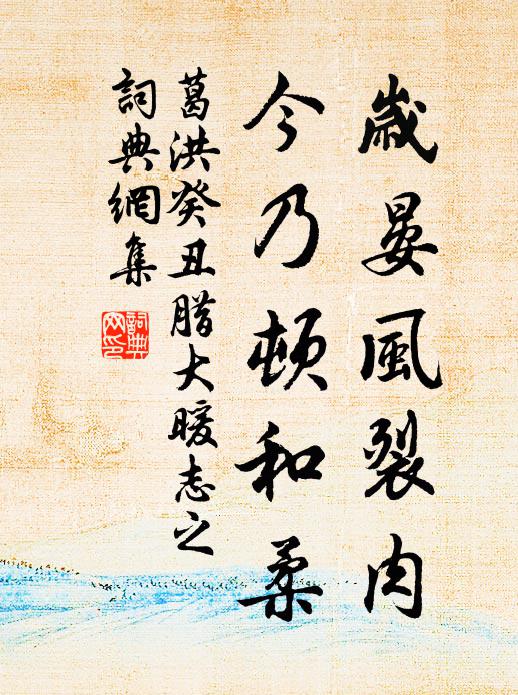 歲晏風裂肉
今乃頓和柔
葛洪癸丑腊大暖志之
詞典網集
詞典網印